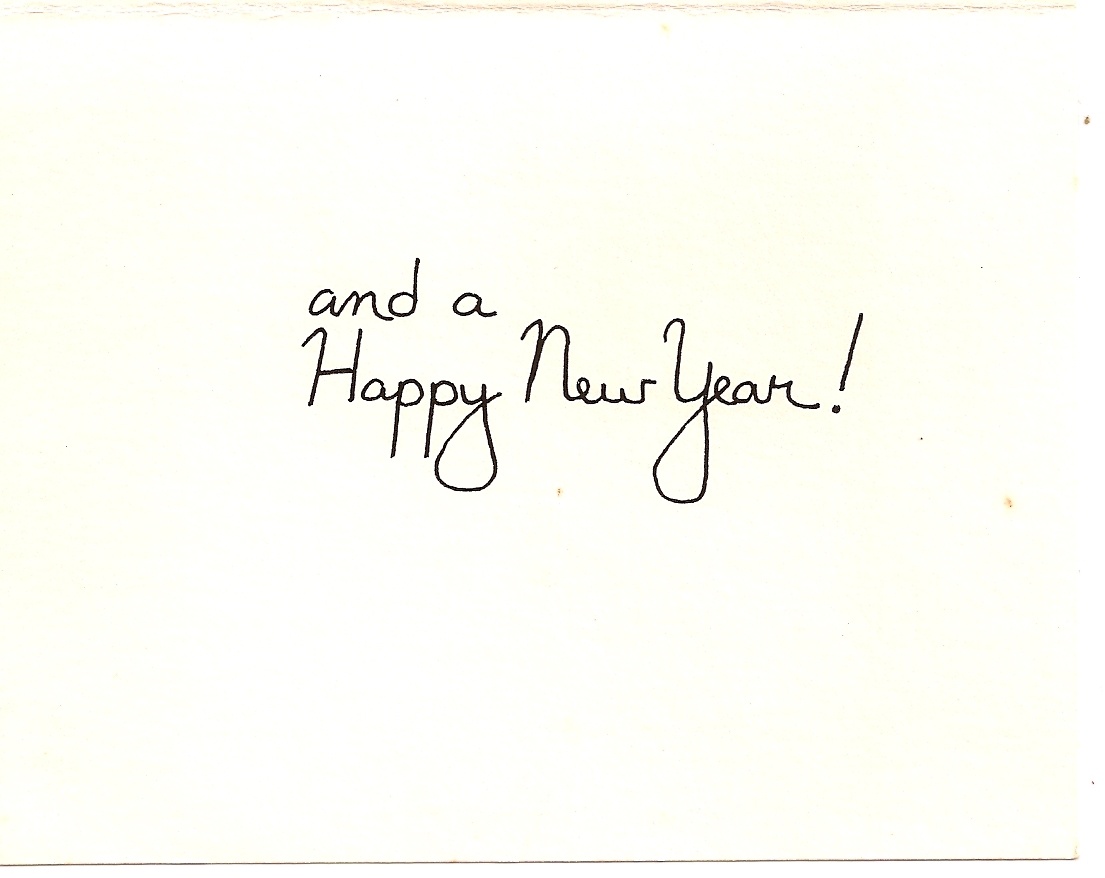 and a
Happy New Year!